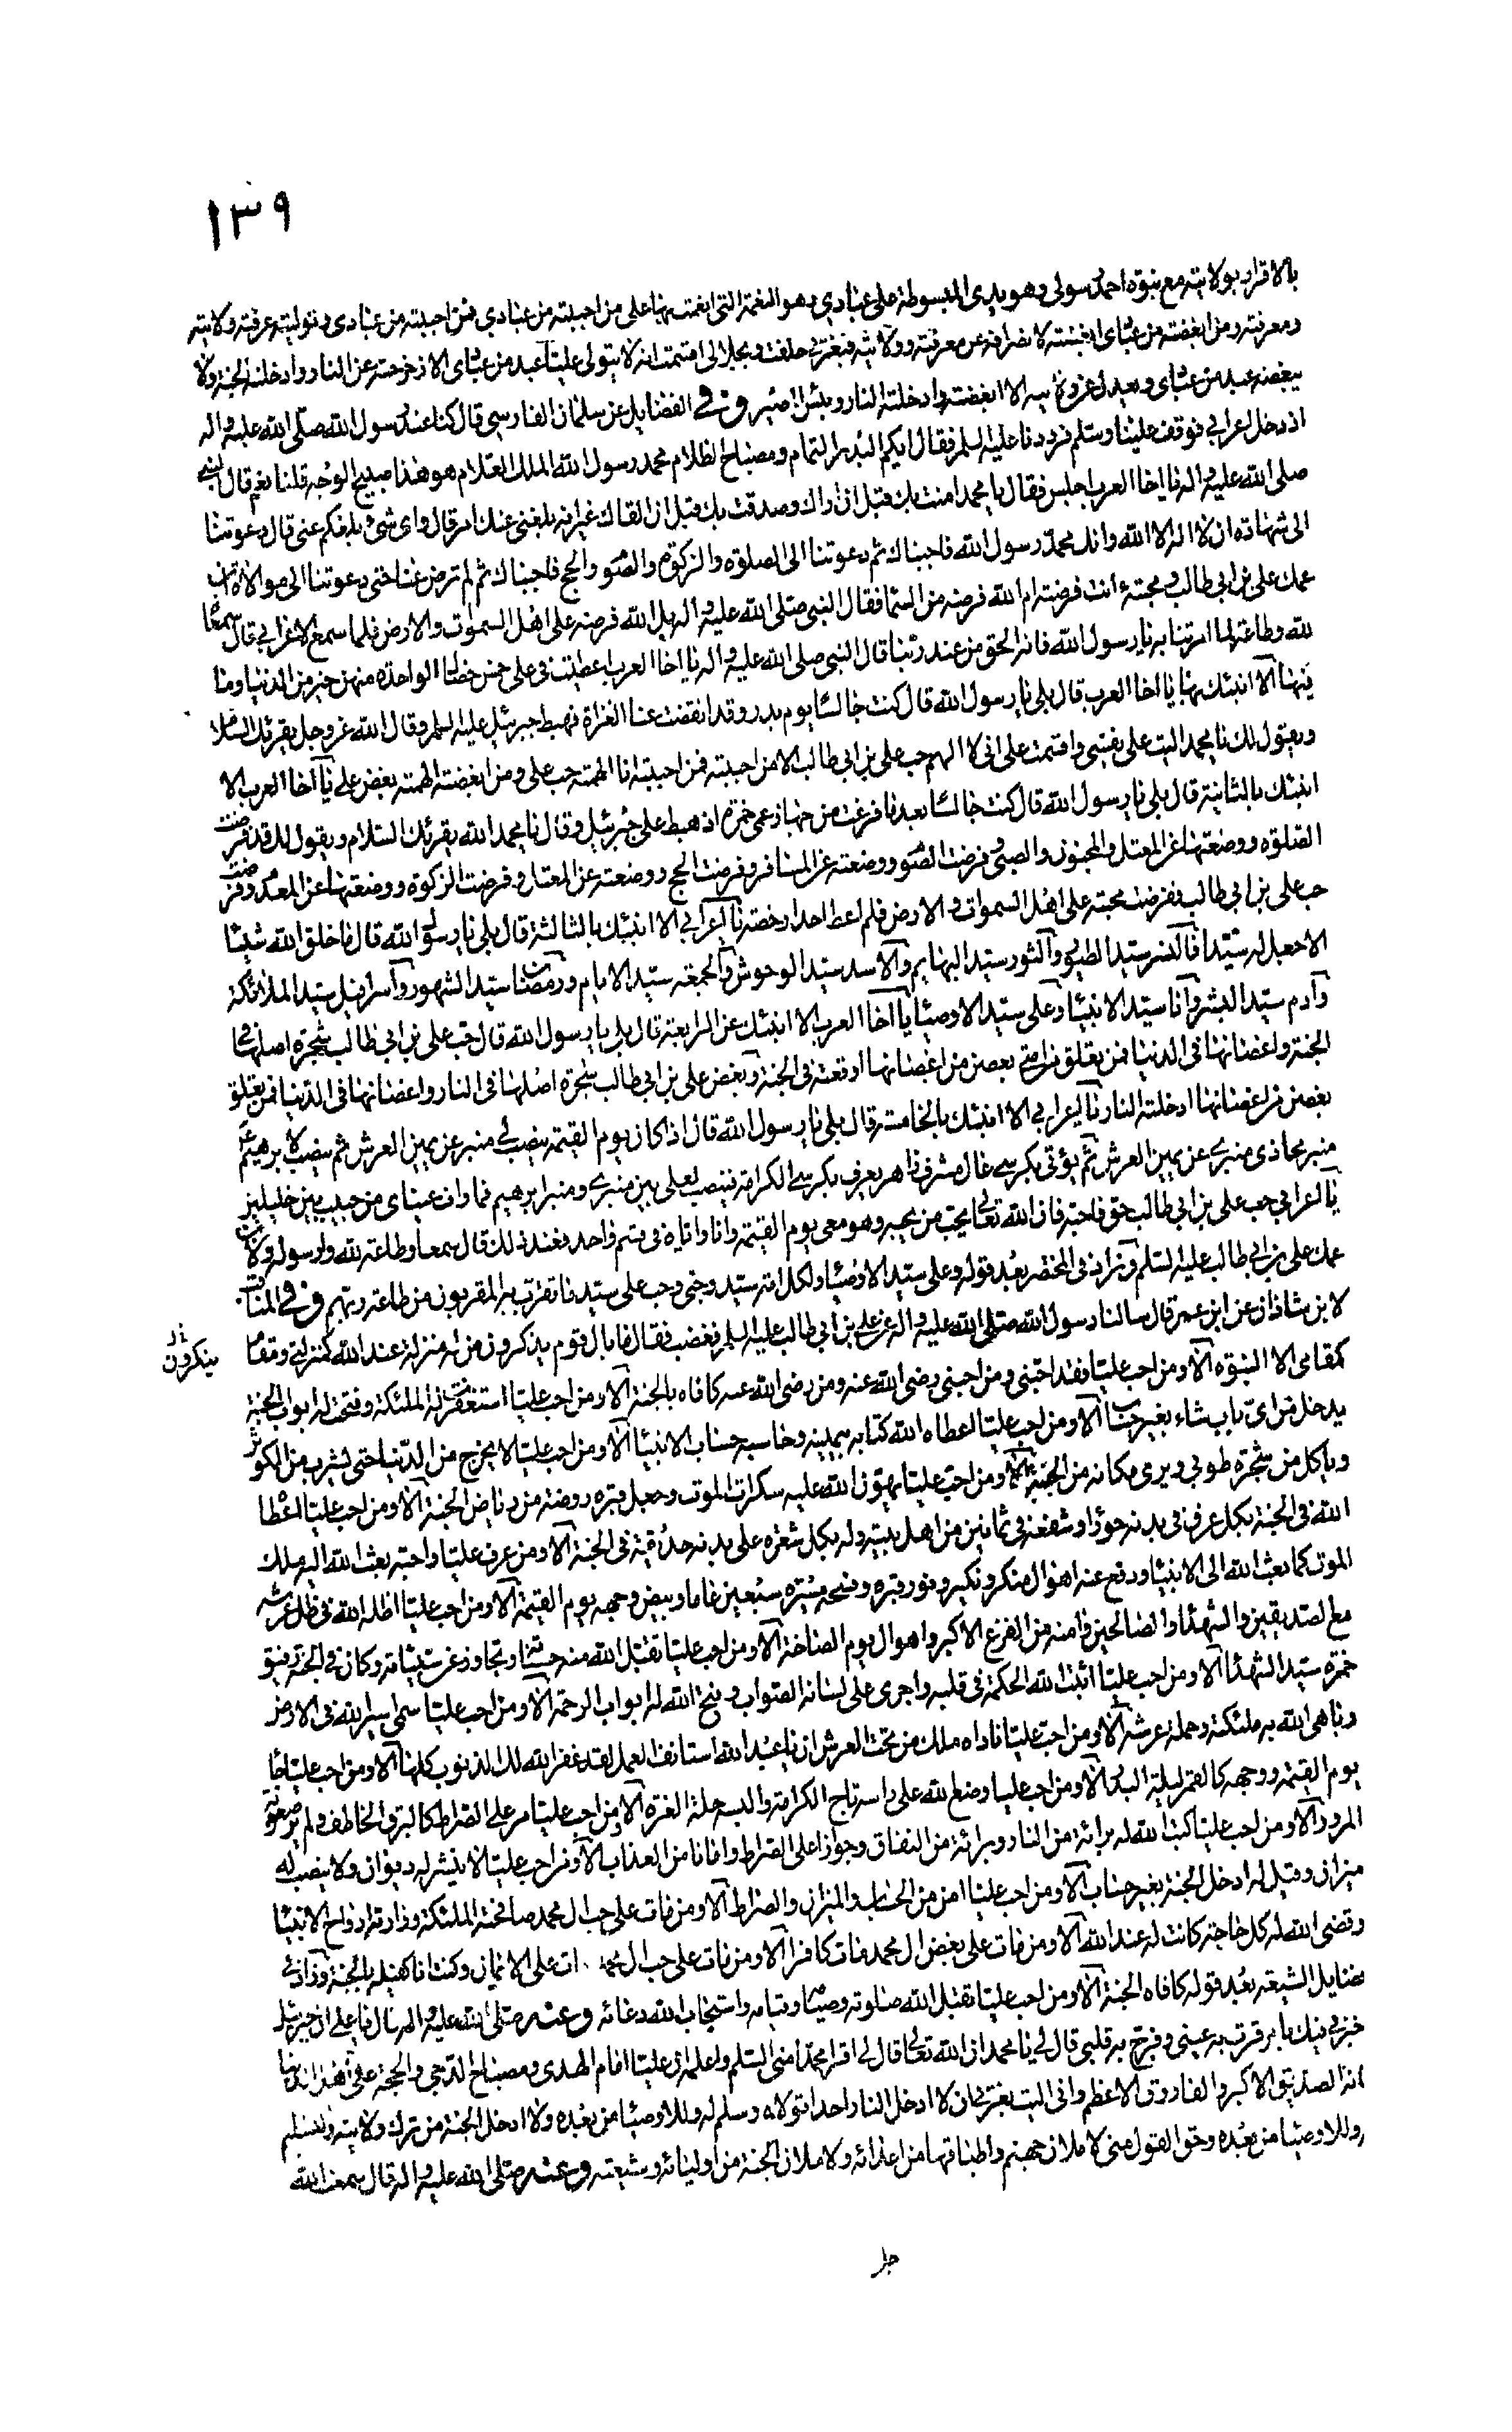 ١٣٩
بالاقرار بولايته مع نبوة احمد رسولى وهو يدى المبسوطة على عبادي وهو النعمة التى انعمت بها على من احببته من عبادي فمن احببته من عبادى وتوليته عرفته ولايته
ومعرفته ومن ابغضته من عبادى ابغضته لانصرافه عن معرفته وولايته فبعزتى حلفت وبجلالى اقسمت انه لا يتولى عليا عبد من عبادى الا زحزحته عن النار وادخلته الجنة ولا
يبغضه عبد من عبادى ويعدل عن ولايته الا ابغضته وادخلته النار وبئس المصير وفي الفضايل عن سلمان الفارسي قال كنا عند رسول الله صلى الله عليه واله
اذ دخل اعرابي فوقف علينا وسلم فرددنا عليه السلم فقال ايكم البدر التمام ومصباح الظلام محمد رسول الله الملك العلام هو هذا صبيح الوجه قلنا نعم قال النبي
صلى الله عليه واله يا اخا العرب اجلس فقال يا محمد امنت بك قبل ان اراك وصدقت بك قبل ان القاك غير انه بلغنى عنك امر قال واى شئ بلغكم عنى قال دعوتنا
الى شهادة ان لا اله الا الله وانك محمد رسول الله فاجبناك ثم دعوتنا الى الصلوة والزكوة والصوم والحج فاجبناك ثم لم ترض عنا حتى دعوتنا الى موالاة ابن
عمك على بن ابي طالب ومحبته ءانت فرضته ام الله فرضه من السما فقال النبي صلى الله عليه واله بل الله فرضه على اهل السموات والارض فلما سمع الاعرابي قال سمعا
لله وطاعة لما امرتنا به يا رسول الله فانه الحق من عند ربنا قال النبي صلى الله عليه واله يا اخا العرب اعطيت في على خمس خصال الواحدة منهن خير من الدنيا وما
فيها الا انبئك بها يا اخا العرب قال بلى يا رسول الله قال كنت جالسا يوم بدر وقد انقضت عنا الغزاة فهبط جبرئيل عليه السلم وقال الله عز وجل يقرئك السلام
ويقول لك يا محمد اليت على نفسي واقسمت على انى لا الهم حب على بن ابي طالب الا من احببته فمن احببته انا الهمته حب على ومن ابغضته الهمته بغض على يا اخا العرب الا
انبئك بالثانية قال بلى يا رسول الله قال كنت جالسا بعد ما فرغت من جهاز عمى حمزة اذ هبط على جبرئيل وقال يا محمد الله يقرئك السلام ويقول لك قد فرضت
الصلوة ووضعتها عن المعتل والمجنون والصبي وفرضت الصوم ووضعته عن المسافر وفرضت الحج ووضعته عن المعتل وفرضت الزكوة ووضعتها عن المعدم وفرضت
حب على بن ابي طالب ففرضت محبته على اهل السموات والارض فلم اعط احدا رخصة يا اعرابي الا انبئك بالثالثة قال بلى يا رسول الله قال ما خلق الله شيئا
الا جعل له سيدا فالنسر سيد الطيور والثور سيد البهايم والاسد سيد الوحوش والجمعة سيد الايام ورمضان سيد الشهور واسرافيل سيد الملائكة
وآدم سيد البشر وانا سيد الانبيا وعلى سيد الاوصيا يا اخا العرب الا انبئك عن الرابعة قال بلى يا رسول الله قال حب على بن ابي طالب شجرة اصلها في
الجنة واغصانها في الدنيا فمن تعلق من امتى بغصن من اغصانها اوقعته في الجنة وبغض على بن ابي طالب شجرة اصلها في النار واغصانها في الدنيا فمن تعلق
بغصن من اغصانها ادخلته النار يا اعرابي الا انبئك بالخامسة قال بلى يا رسول الله قال اذا كان يوم القيمة ينصب لي منبر عن يمين العرش ثم ينصب لابرهيم
منبر محاذى منبري عن يمين العرش ثم يؤتى بكرسي عال مشرف زاهر يعرف بكرسي الكرامة فينصب لعلى بين منبري ومنبر ابرهيم فما رات عيناى من حبيب بين خليلين
يا اعرابي حب على بن ابي طالب حق فاحبه فان الله تعالى يحب من يحبه وهو معى يوم القيمة وانا واياه في قسم واحد فعند ذلك قال سمعا وطاعة لله ولرسوله ولابن
عمك على بن ابي طالب عليه السلم وزاد في المختصر بعد قوله وعلى سيد الاوصيا ولكل امة سيد وحبى وحب على سيد ما تقرب به المقربون من طاعة ربهم وفي المناقب
لابن شاذان عن ابن عمر قال سالنا رسول الله صلى الله عليه واله عن على بن ابي طالب عليه السلم فغضب فقال ما بال قوم يذكرون من له منزلة عند الله كمنزلتي ومقام
ينكرون
كمقامى الا النبوة الا ومن احب عليا فقد احبنى ومن احبنى رضى الله عنه ومن رضى الله عنه كافاه بالجنة الا ومن احب عليا استغفرت له الملئكة وفتحت له ابواب الجنة
يدخل من اى باب شاء بغير حساب الا ومن احب عليا اعطاه الله كتابه بيمينه وحاسبه حساب الانبيا الا ومن احب عليا لا يخرج من الدنيا حتى يشرب من الكوثر
وياكل من شجرة طوبى ويرى مكانه من الجنة الا ومن احب عليا يهون الله عليه سكرات الموت وجعل قبره روضة من رياض الجنة الا ومن احب عليا اعطا
الله في الجنة بكل عرق في بدنه حورا وشفعه في ثمانين من اهل بيته وله بكل شعرة على بدنه حديقة في الجنة الا ومن عرف عليا واحبه بعث الله اليه ملك
الموت كما بعث الله الى الانبيا ودفع عنه اهوال منكر ونكير ونور قبره وفسحه مسيرة سبعين عاما وبيض وجهه يوم القيمة الا ومن احب عليا اظله الله في ظل عرشه
مع الصديقين والشهدا والصالحين وامنه من الفزع الاكبر واهوال يوم الصاخة الا ومن احب عليا تقبل الله منه حسناته وتجاوز عن سيئاته وكان في الجنة رفيق
حمزة سيد الشهدا الا ومن احب عليا اثبت الله الحكمة في قلبه واجرى على لسانه الصواب وفتح الله له ابواب الرحمة الا ومن احب عليا سمى اسير الله في الارض
وباهى الله به ملئكته وحملة عرشه الا ومن احب عليا ناداه ملك من تحت العرش ان يا عبد الله استانف العمل لقد غفر الله لك الذنوب كلها الا ومن احب عليا جا
يوم القيمة ووجهه كالقمر ليلة البدر الا ومن احب عليا وضع الله على راسه تاج الكرامة والبسه حلة العزة الا ومن احب عليا مر على الصراط كالبرق الخاطف ولم ير صعوبة
المرور الا ومن احب عليا كتب الله له برائة من النار وبرائة من النفاق وجوازا على الصراط وامانا من العذاب الا ومن احب عليا لا ينشر له ديوان ولا ينصب له
ميزان وقيل له ادخل الجنة بغير حساب الا ومن احب عليا امن من الحساب والميزان والصراط الا ومن مات على حب ال محمد صافحته الملئكة وزارته ارواح الانبيا
وقضى الله له كل حاجة كانت له عند الله الا ومن مات على بغض ال محمد مات كافرا الا ومن مات على حب ال محمد مات على الايمان وكنت انا كفيله بالجنة وزاد في
فضايل الشيعة بعد قوله كافاه الجنة الا ومن احب عليا تقبل الله صلوته وصيامه وقيامه واستجاب الله دعائه وعنه صلى الله عليه واله قال يا على ان جبرئيل
خبرني فيك بامر قرت به عينى وفرح به قلبى قال لي يا محمد ان الله تعالى قال لي اقرا محمدا منى السلم واعلمه ان عليا امام الهدى ومصباح الدجى والحجة على اهل الدنيا
انه الصديق الاكبر والفاروق الاعظم وانى اليت بعزتى ان لا ادخل النار احدا تولاه وسلم له وللاوصيا من بعده ولا ادخل الجنة من ترك ولايته والتسليم
له وللاوصيا من بعده وحق القول منى لاملان جهنم واطباقها من اعدائه ولاملان الجنة من اوليائه وشيعته وعنه صلى الله عليه واله قال سمعت الله
جل